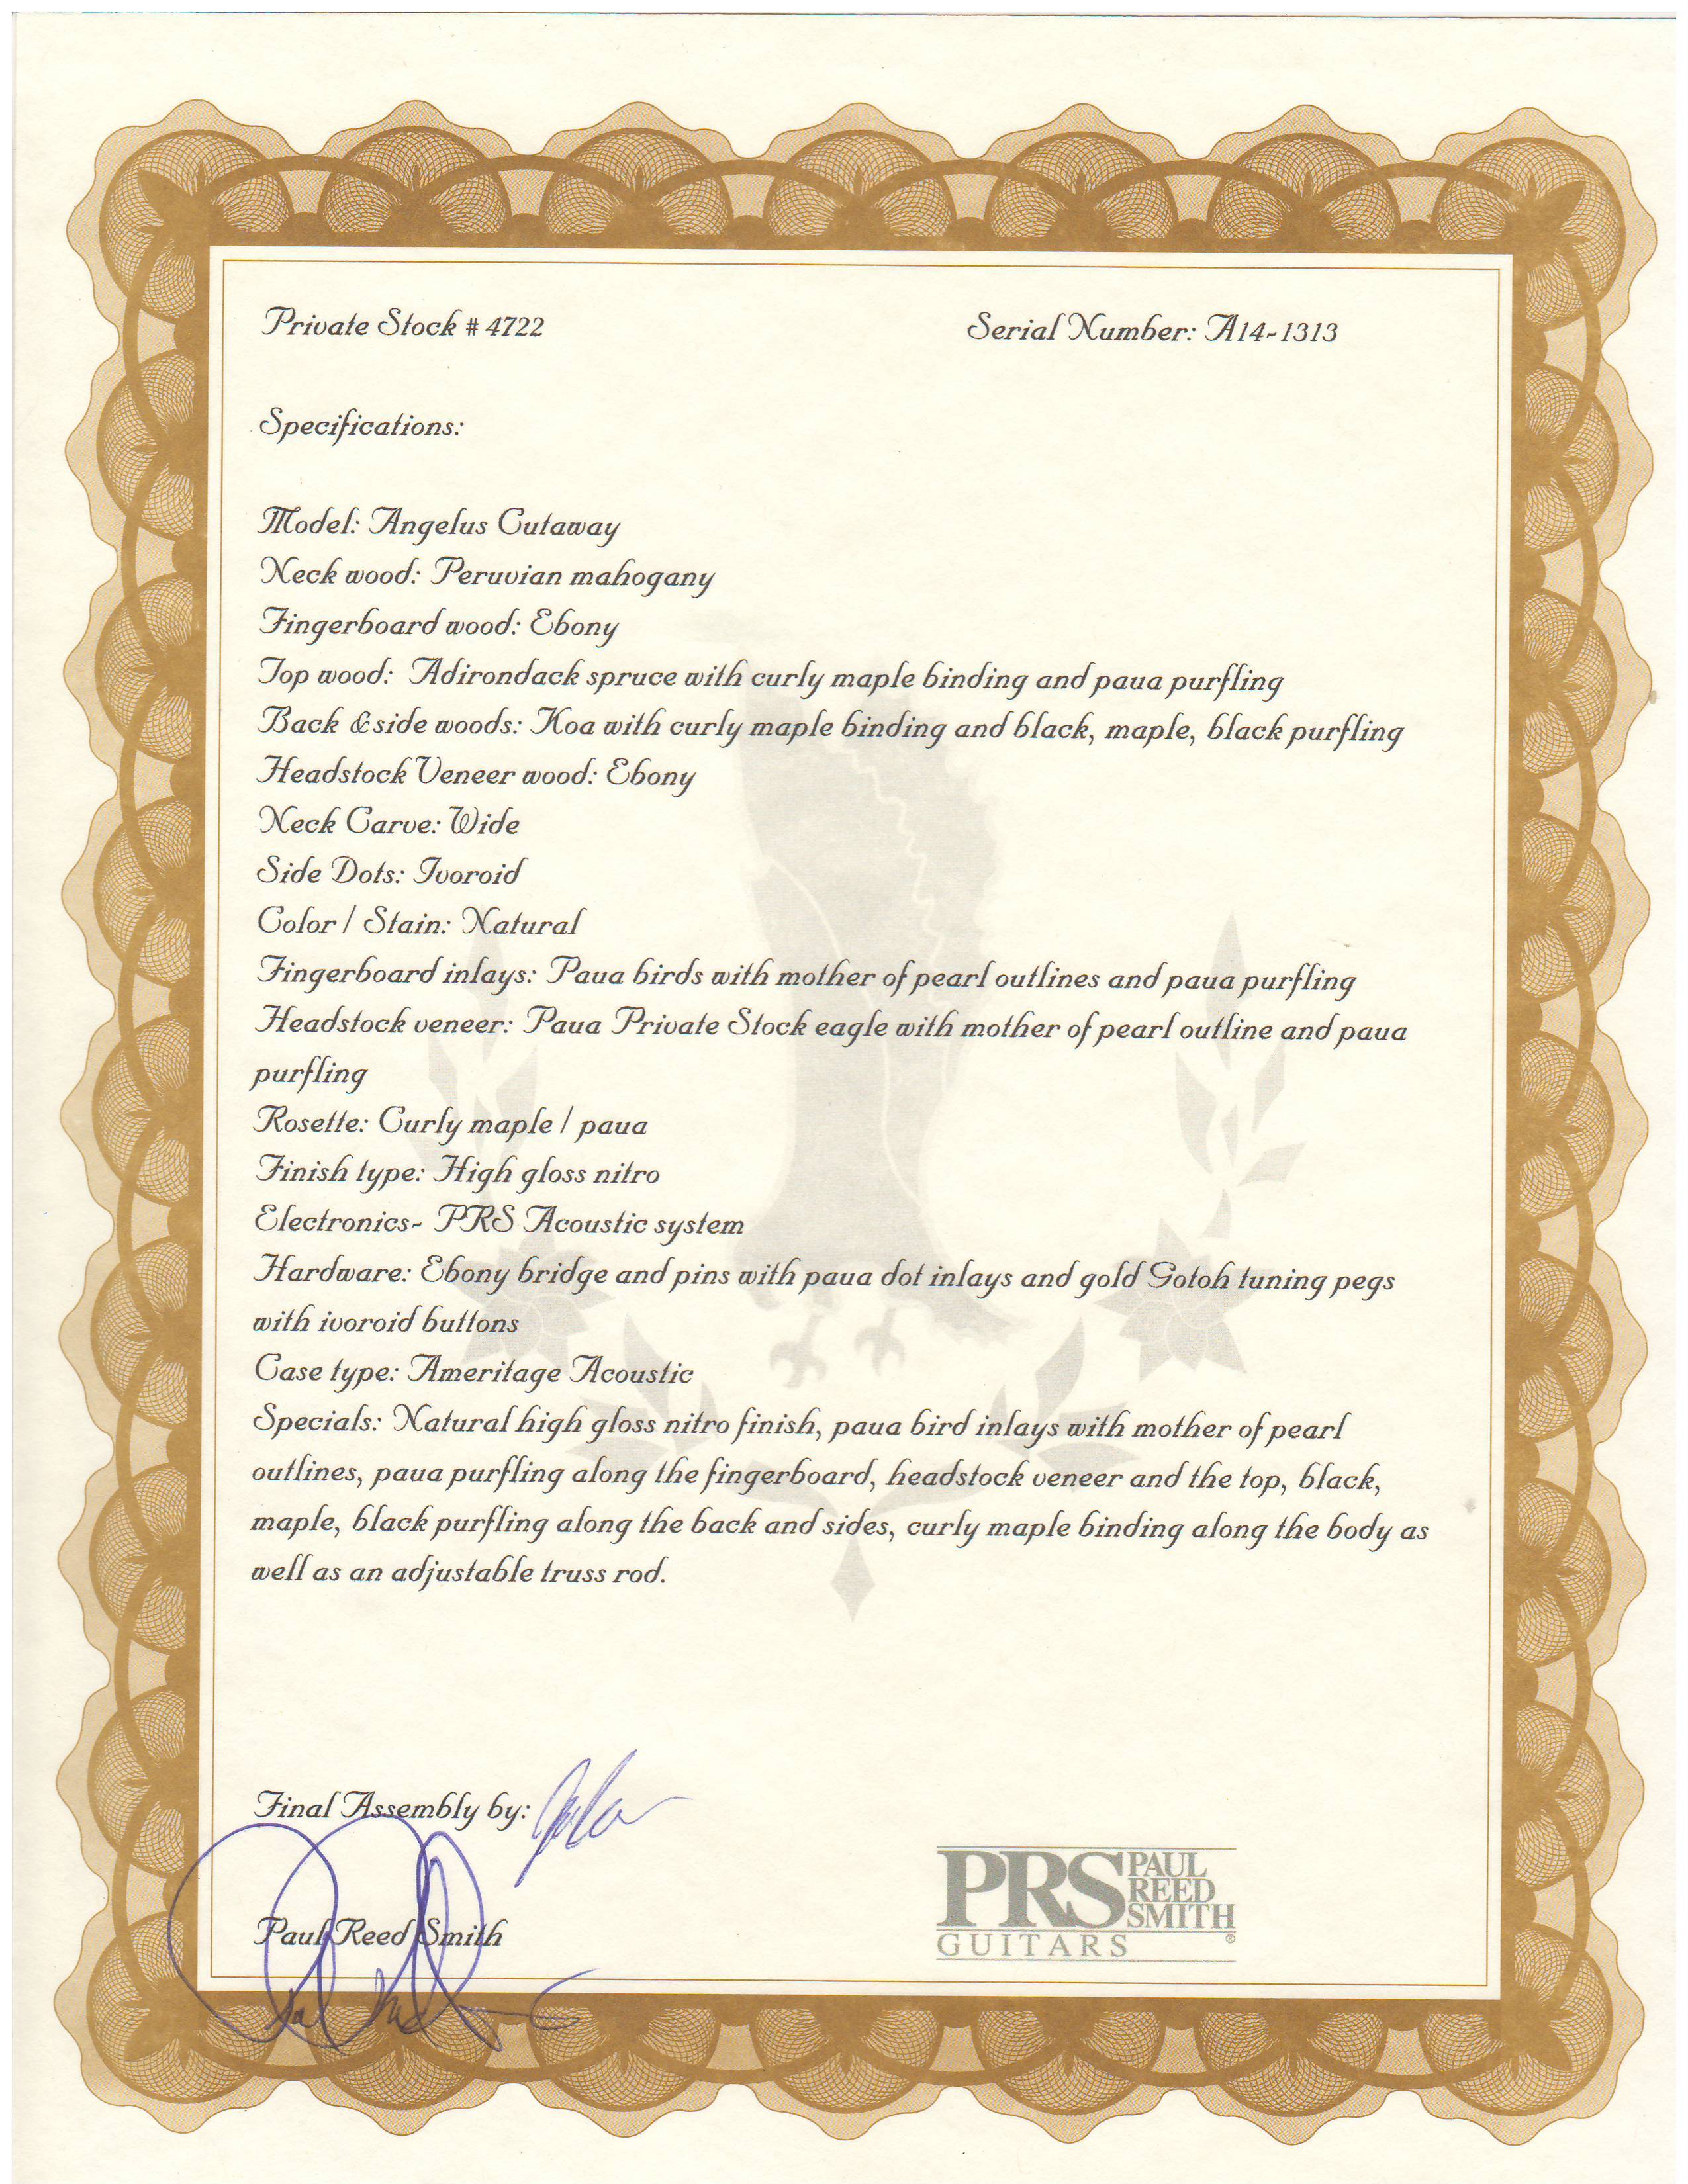 Private Stock # 4722 Serial Number: A14-1313
Specifications:
Model: Angelus Cutaway
Neck wood: Peruvian mahogany
Fingerboard wood: Ebony
Top wood: Adirondack spruce with curly maple binding and paua purfling
Back & side woods: Koa with curly maple binding and black, maple, black purfling
Headstock Veneer wood: Ebony
Neck Carve: Wide
Side Dots: Ivoroid
Color / Stain: Natural
Fingerboard inlays: Paua birds with mother of pearl outlines and paua purfling
Headstock veneer: Paua Private Stock eagle with mother of pearl outline and paua
purfling
Rosette: Curly maple / paua
Finish type: High gloss nitro
Electronics- PRS Acoustic system
Hardware: Ebony bridge and pins with paua dot inlays and gold Gotoh tuning pegs
with ivoroid buttons
Case type: Ameritage Acoustic
Specials: Natural high gloss nitro finish, paua bird inlays with mother of pearl
outlines, paua purfling along the fingerboard, headstock veneer and the top, black,
maple, black purfling along the back and sides, curly maple binding along the body as
well as an adjustable truss rod.
Final Assembly by:
Paul Reed Smith
PRS PAUL
REED
SMITH
GUITARS ®